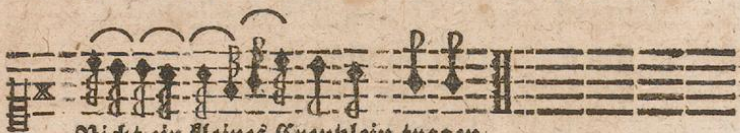 Nicht ein kleines Creutzlein tragen.